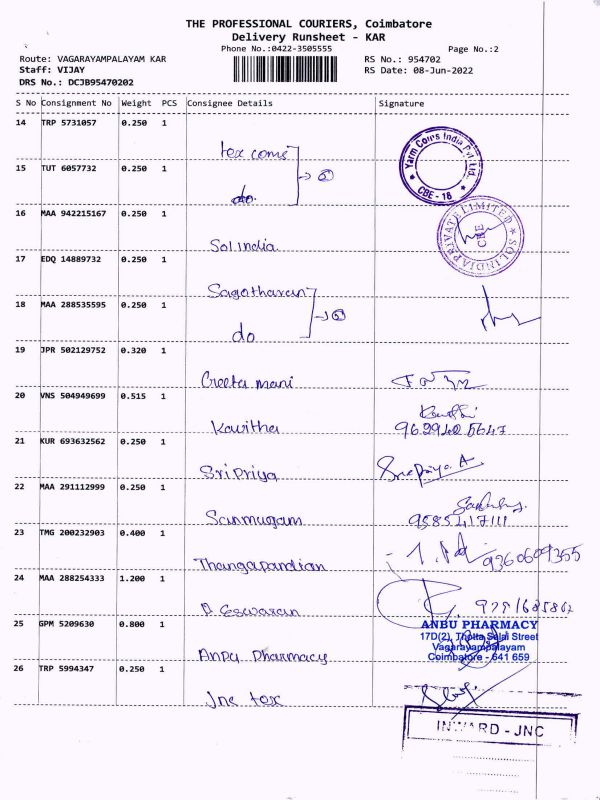 THE PROFESSIONAL COURIERS, Coimbatore
Delivery Runsheet - KAR
Phone No.:0422-3505555
Page No.:2
Route: VAGARAYAMPALAYAM KAR
RS No.: 954702
Staff: VIJAY
RS Date: 08-Jun-2022
DRS No.: DCJB95470202
S No Consignment No Weight PCS Consignee Details Signature
14 TRP 5731057 0.250 1
tex coms
Yarn Coirs India Pvt. Ltd.
CBE - 18
15 TUT 6057732 0.250 1
do.
16 MAA 942215167 0.250 1
Sol.india
SOL INDIA PRIVATE LIMITED
CBE
17 EDQ 14889732 0.250 1
Sagotharan
18 MAA 288535595 0.250 1
do
19 JPR 502129752 0.320 1
Creeta mani
20 VNS 504949699 0.515 1
Kavitha
21 KUR 693632562 0.250 1
Sri Priya
Sripriya. A
22 MAA 291112999 0.250 1
Sanmugam
9585417111
23 TMG 200232903 0.400 1
Thangapandian
9360609355
24 MAA 288254333 1.200 1
D Eswaran
25 GPM 5209630 0.800 1
Anpu Pharmacy
ANBU PHARMACY
17D(2), Thotta Salai Street
Vagarayampalayam
Coimbatore - 641 659
26 TRP 5994347 0.250 1
Jnc tex
INWARD - JNC